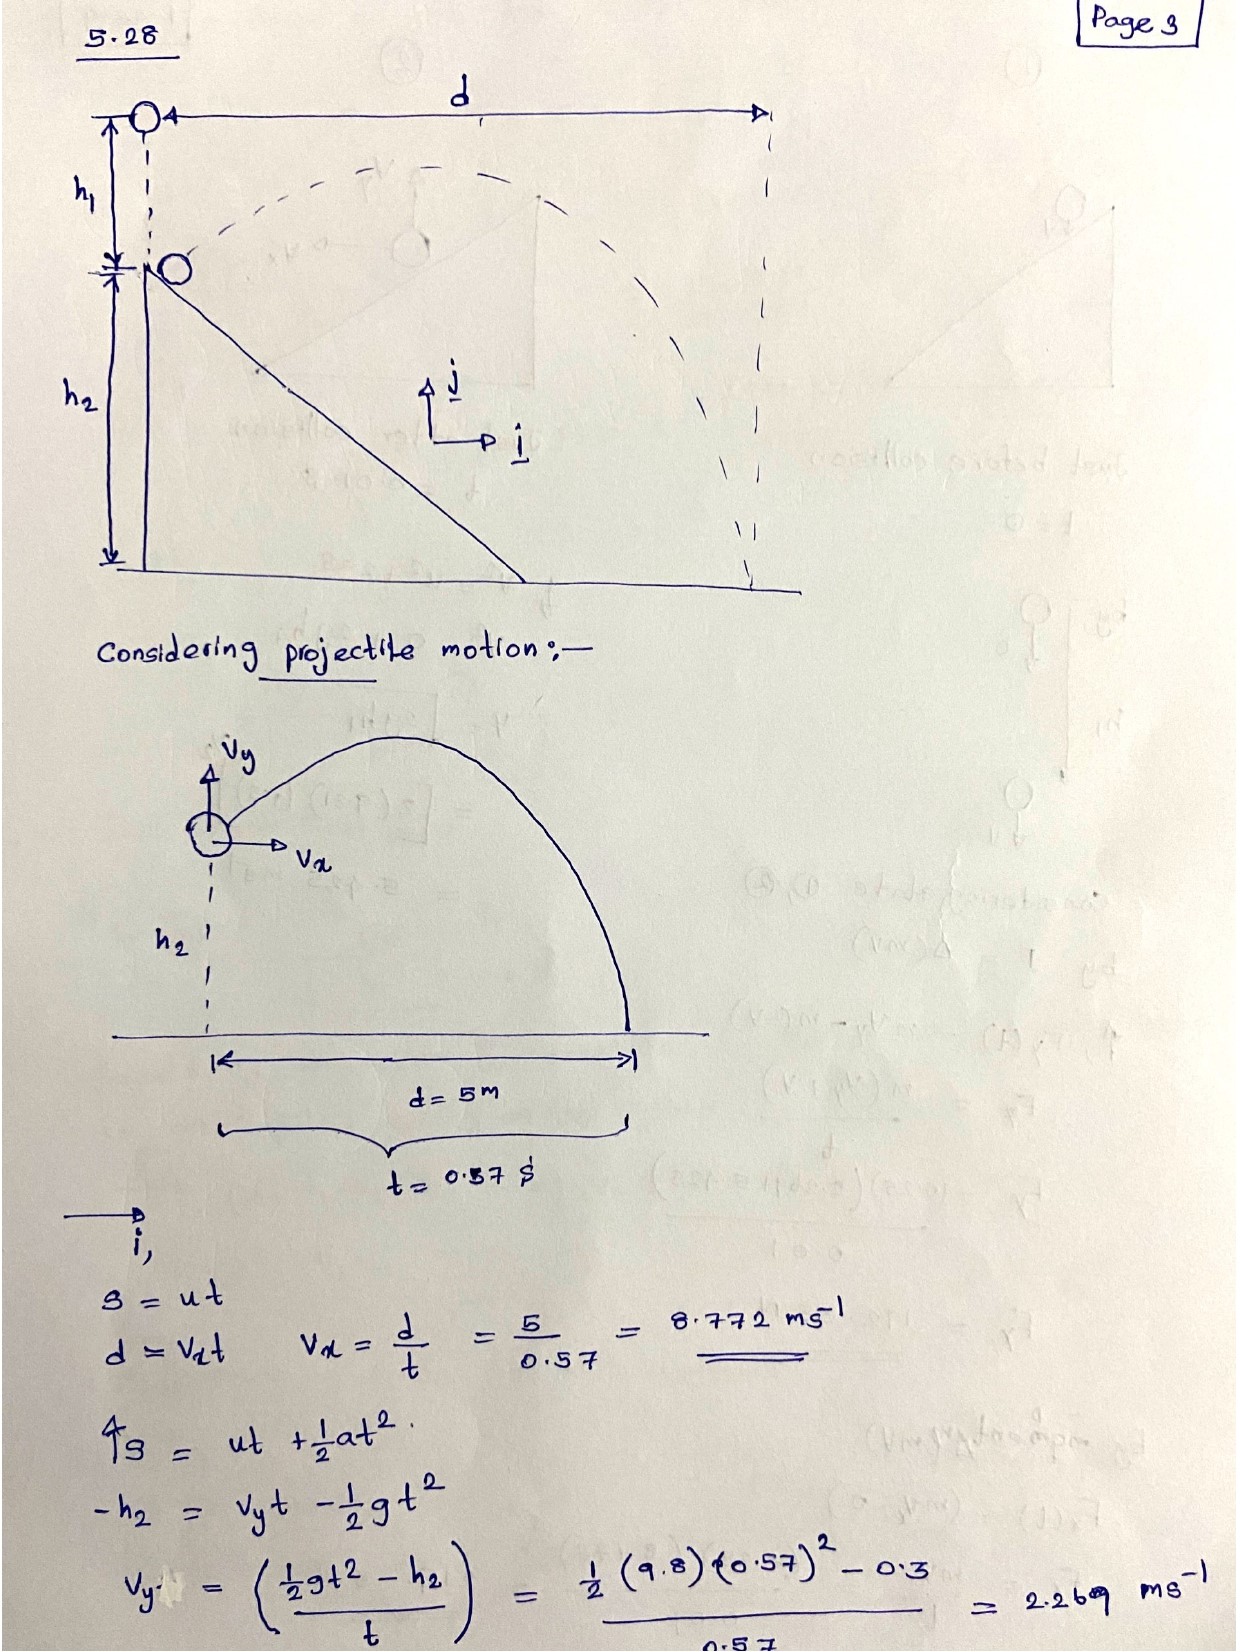 Page 3
5.28
d
h₁
h₂
j
i
Considering projectile motion :—
Vy
Vx
h₂
d = 5m
t = 0.57 s
i,
s = ut
d = Vxt   Vx = d/t = 5/0.57 = 8.772 ms⁻¹
↑s = ut + ½at².
-h₂ = Vyt - ½gt²
Vy = (½gt² - h₂ / t) = ½ (9.8)(0.57)² - 0.3 / 0.57 = 2.269 ms⁻¹